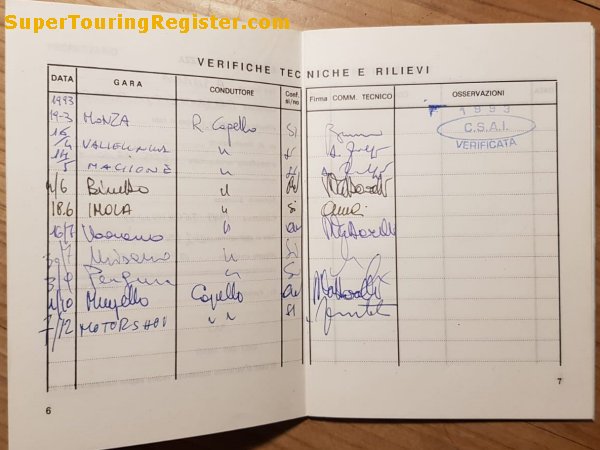 SuperTouringRegister.com
VERIFICHE TECNICHE E RILIEVI
DATA GARA CONDUTTORE Conf. si/no Firma COMM. TECNICO OSSERVAZIONI
1993
19-3 MONZA R. Capello si
1993
C.S.A.I.
VERIFICATA
16/4 VALLELUNGA "
14/5 MAGIONE "
4/6 Binetto "
18.6 IMOLA " si
16/7 Varano "
Misano " Si
Pergusa "
Mugello Capello
7/12 MOTORSHOW " " si
6
7